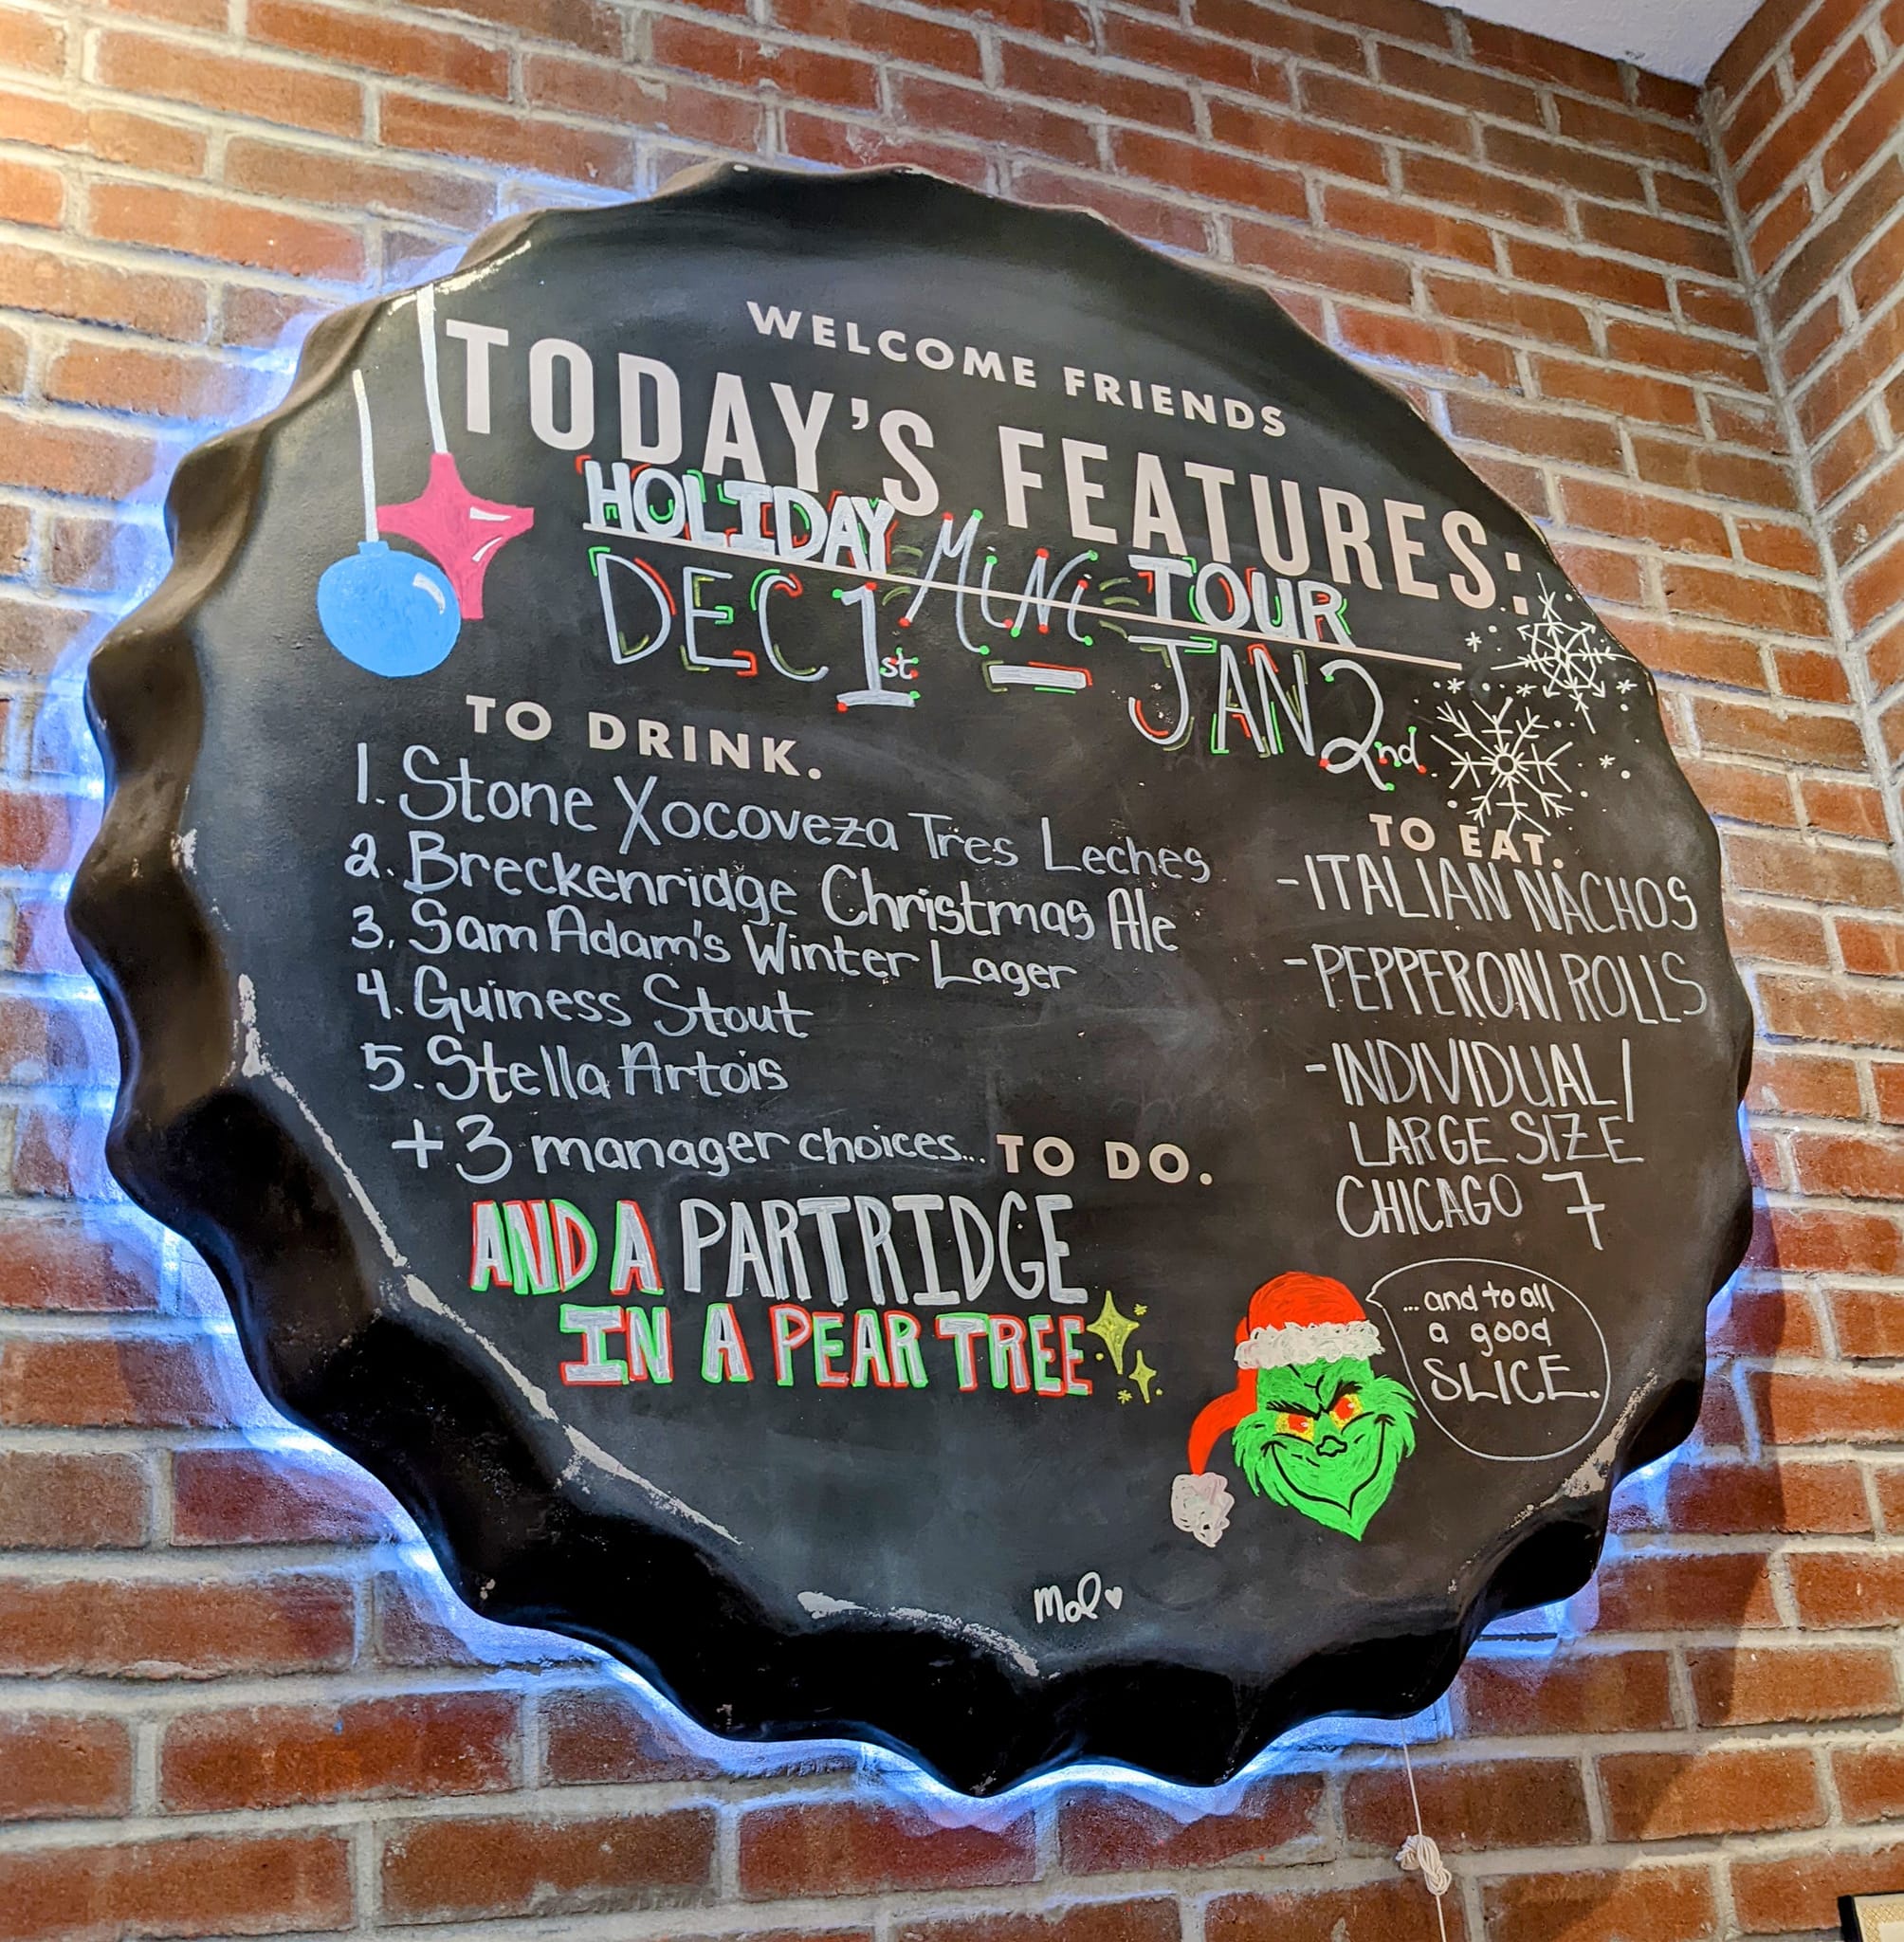 WELCOME FRIENDS
TODAY'S FEATURES:
HOLIDAY MiNi TOUR
DEC 1st - JAN 2nd
TO DRINK.
1. Stone Xocoveza Tres Leches
2. Breckenridge Christmas Ale
3. Sam Adam's Winter Lager
4. Guiness Stout
5. Stella Artois
+3 manager choices...
TO EAT.
-ITALIAN NACHOS
-PEPPERONI ROLLS
-INDIVIDUAL/
LARGE SIZE
CHICAGO 7
TO DO.
AND A PARTRIDGE
IN A PEAR TREE
...and to all
a good
SLICE.
Mol